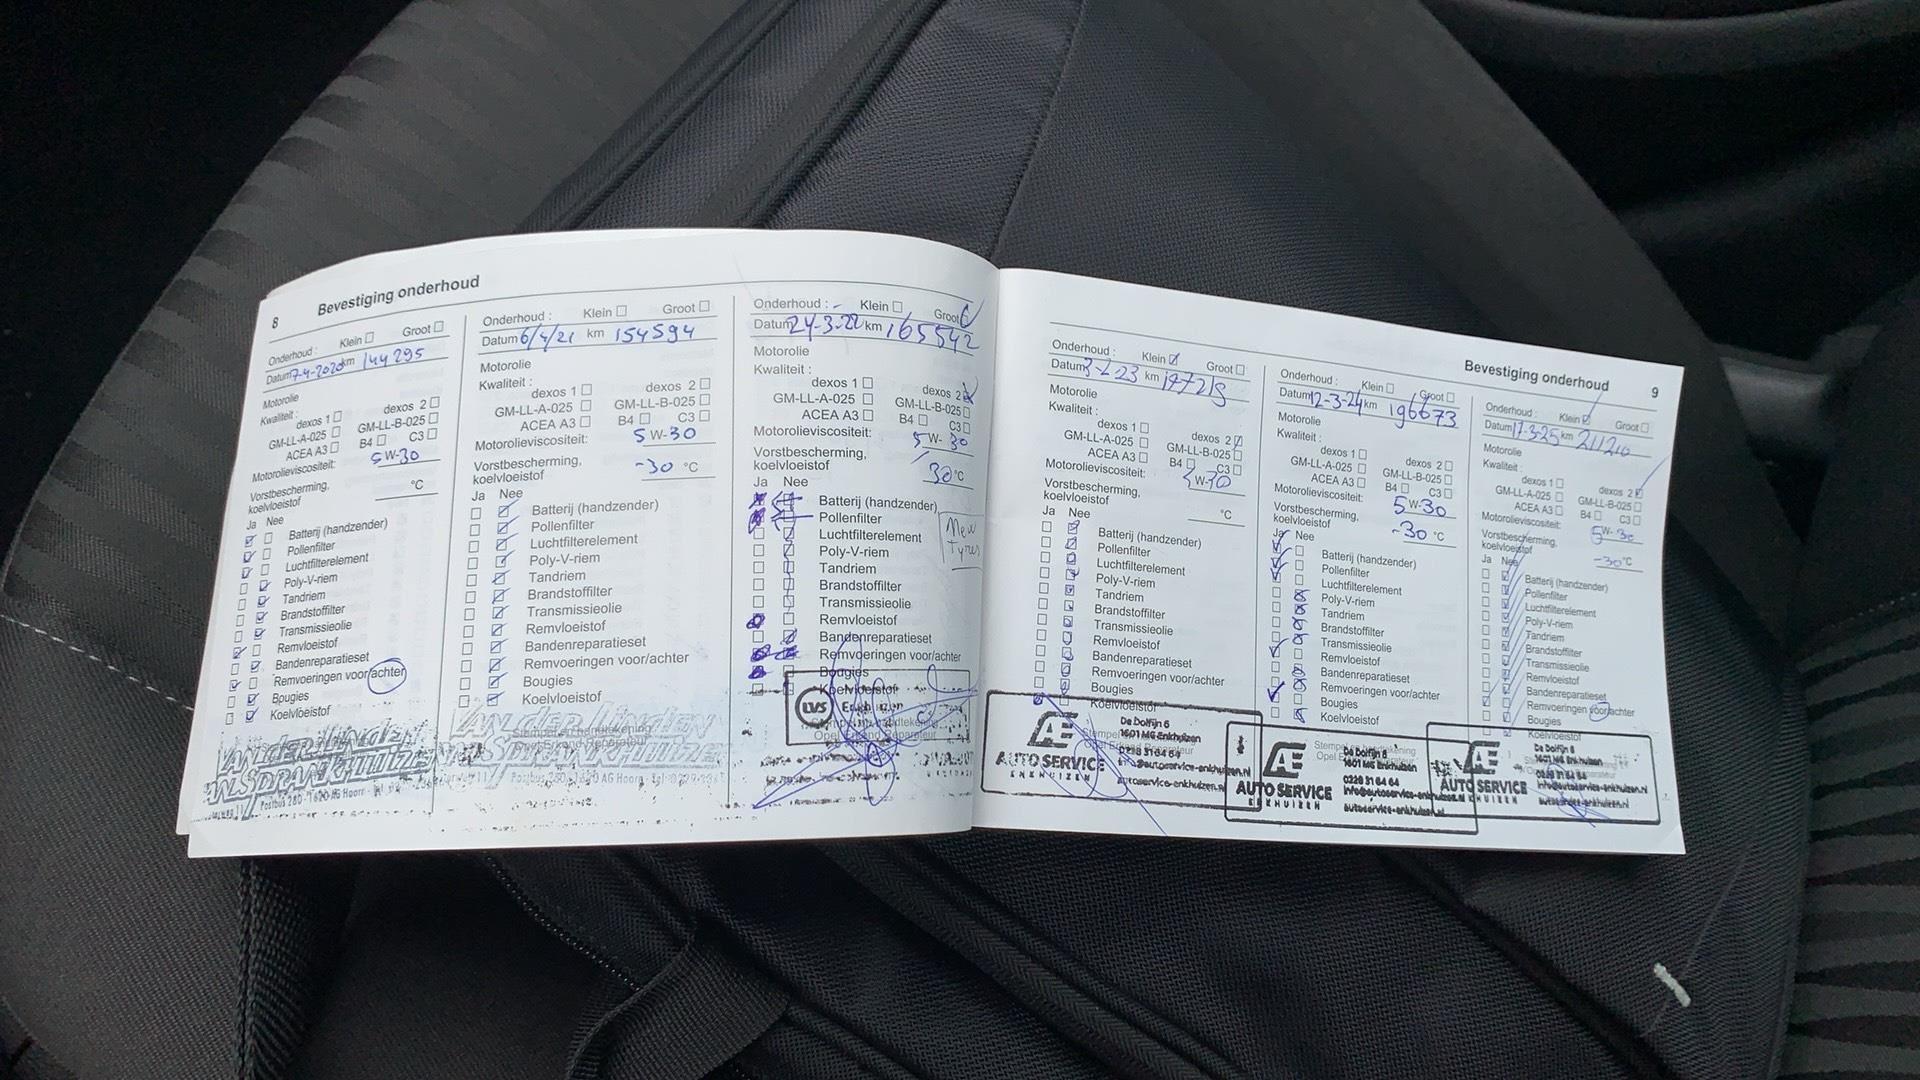 8 Bevestiging onderhoud
Onderhoud : Klein Groot
Datum 7-4-2020 km 144295
Motorolie
Kwaliteit : dexos 1 dexos 2
GM-LL-A-025 GM-LL-B-025
ACEA A3 B4 C3
Motorolieviscositeit: 5 W-30
Vorstbescherming,
koelvloeistof °C
Ja Nee
Batterij (handzender)
Pollenfilter
Luchtfilterelement
Poly-V-riem
Tandriem
Brandstoffilter
Transmissieolie
Remvloeistof
Bandenreparatieset
Remvoeringen voor/achter
Bougies
Koelvloeistof
VAN DER LINDEN
Postbus 280 - 1620 AG Hoorn
Onderhoud : Klein Groot
Datum 6/4/21 km 154594
Motorolie
Kwaliteit :
dexos 1 dexos 2
GM-LL-A-025 GM-LL-B-025
ACEA A3 B4 C3
Motorolieviscositeit: 5 W-30
Vorstbescherming,
koelvloeistof -30 °C
Ja Nee
Batterij (handzender)
Pollenfilter
Luchtfilterelement
Poly-V-riem
Tandriem
Brandstoffilter
Transmissieolie
Remvloeistof
Bandenreparatieset
Remvoeringen voor/achter
Bougies
Koelvloeistof
VAN DER LINDEN
Stempel en handtekening
Opel Erkend Reparateur
Postbus 280 - 1620 AG Hoorn
Onderhoud : Klein Groot
Datum 24-3-22 km 165542
Motorolie
Kwaliteit :
dexos 1 dexos 2
GM-LL-A-025 GM-LL-B-025
ACEA A3 B4 C3
Motorolieviscositeit: 5 W- 30
Vorstbescherming,
koelvloeistof 30 °C
Ja Nee
Batterij (handzender)
Pollenfilter
Luchtfilterelement
New
Poly-V-riem
Tandriem
Brandstoffilter
Transmissieolie
Remvloeistof
Bandenreparatieset
Remvoeringen voor/achter
Bougies
Koelvloeistof
LVS Enkhuizen
Stempel en handtekening
Opel Erkend Reparateur
Bevestiging onderhoud 9
Onderhoud : Klein Groot
Datum km
Motorolie
Kwaliteit :
dexos 1 dexos 2
GM-LL-A-025 GM-LL-B-025
ACEA A3 B4 C3
Motorolieviscositeit: 5 W-30
Vorstbescherming,
koelvloeistof °C
Ja Nee
Batterij (handzender)
Pollenfilter
Luchtfilterelement
Poly-V-riem
Tandriem
Brandstoffilter
Transmissieolie
Remvloeistof
Bandenreparatieset
Remvoeringen voor/achter
Bougies
Koelvloeistof
AE
AUTO SERVICE
ENKHUIZEN
De Dolfijn 6
1601 MG Enkhuizen
0228 31 64 64
info@autoservice-enkhuizen.nl
autoservice-enkhuizen.nl
Onderhoud : Klein Groot
Datum 12-3-24 km 196673
Motorolie
Kwaliteit :
dexos 1 dexos 2
GM-LL-A-025 GM-LL-B-025
ACEA A3 B4 C3
Motorolieviscositeit: 5 W-30
Vorstbescherming,
koelvloeistof -30 °C
Ja Nee
Batterij (handzender)
Pollenfilter
Luchtfilterelement
Poly-V-riem
Tandriem
Brandstoffilter
Transmissieolie
Remvloeistof
Bandenreparatieset
Remvoeringen voor/achter
Bougies
Koelvloeistof
AE
AUTO SERVICE
ENKHUIZEN
De Dolfijn 6
1601 MG Enkhuizen
0228 31 64 64
info@autoservice-enkhuizen.nl
autoservice-enkhuizen.nl
Onderhoud : Klein Groot
Datum 17-3-25 km 211210
Motorolie
Kwaliteit :
dexos 1 dexos 2
GM-LL-A-025 GM-LL-B-025
ACEA A3 B4 C3
Motorolieviscositeit: 5 W- 30
Vorstbescherming,
koelvloeistof -30 °C
Ja Nee
Batterij (handzender)
Pollenfilter
Luchtfilterelement
Poly-V-riem
Tandriem
Brandstoffilter
Transmissieolie
Remvloeistof
Bandenreparatieset
Remvoeringen voor/achter
Bougies
Koelvloeistof
AE
AUTO SERVICE
ENKHUIZEN
De Dolfijn 6
1601 MG Enkhuizen
0228 31 64 64
info@autoservice-enkhuizen.nl
autoservice-enkhuizen.nl